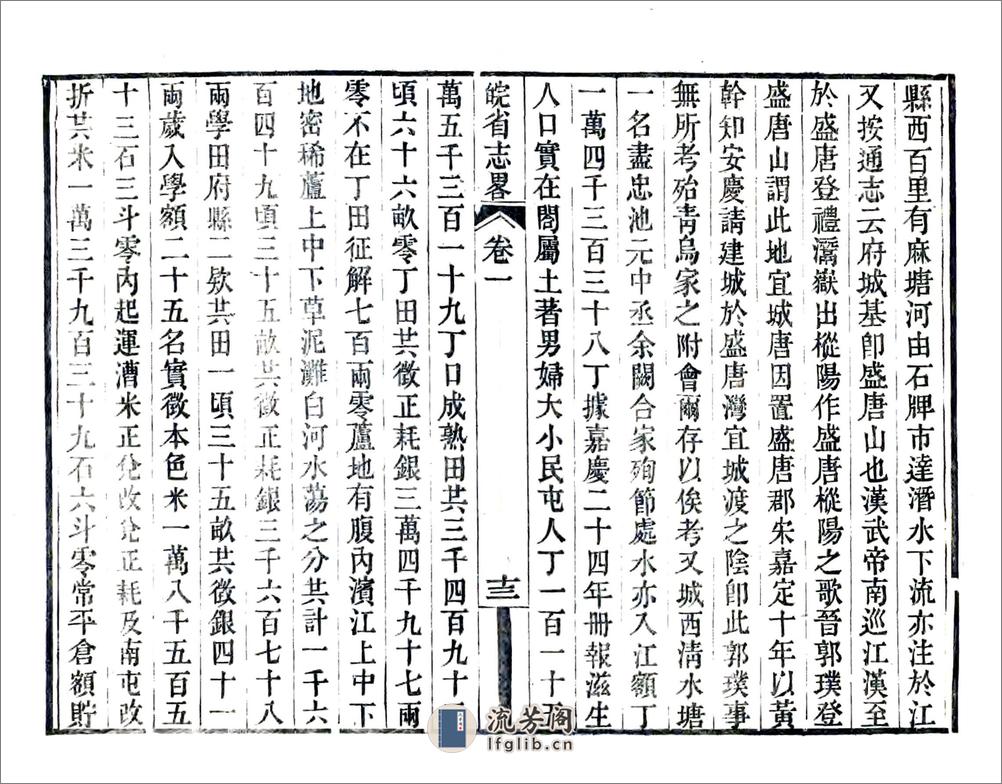 縣西百里有麻塘河由石牌市達潛水下流亦注於江
又按通志云府城基卽盛唐山也漢武帝南巡江漢至
於盛唐登禮灊嶽出樅陽作盛唐樅陽之歌晉郭璞登
盛唐山謂此地宜城唐因置盛唐郡宋嘉定十年以黃
幹知安慶請建城於盛唐灣宜城渡之陰卽此郭璞事
無所考殆靑烏家之附會爾存以俟考又城西淸水塘
一名盡忠池元中丞余闕合家殉節處水亦入江額丁
一萬四千三百三十八丁據嘉慶二十四年冊報滋生
人口實在閤屬土著男婦大小民屯人丁一百一十五
皖省志畧
卷一
十三
萬五千三百一十九丁口成熟田共三千四百九十二
頃六十六畝零丁田共徵正耗銀三萬四千九十七兩
零不在丁田征解七百兩零蘆地有腹內濱江上中下
地密稀蘆上中下草泥灘白河水蕩之分共計一千六
百四十九頃三十五畝共徵正耗銀三千六百七十八
兩學田府縣二欵共田一頃三十五畝共徵銀四十一
兩歲入學額二十五名實徵本色米一萬八千五百五
十三石三斗零內起運漕米正兌改兌正耗及南屯改
折共米一萬三千九百三十九石六斗零常平倉額貯
流芳阁
lfglib.cn